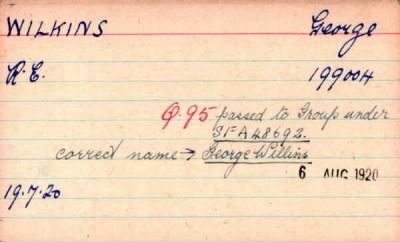 WILKINS George
R.E. 199004
Q.95 passed to Group under
SFA 48692.
correct name → George Willins
6 AUG 1920
19.7.20